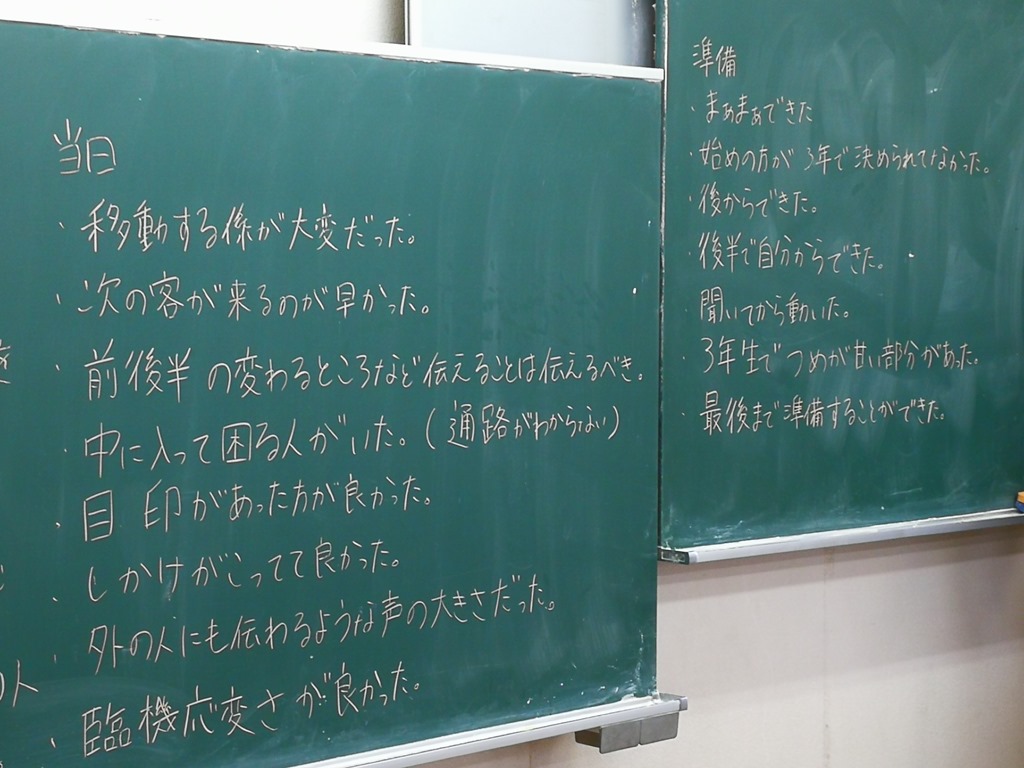 当日
・移動する係が大変だった。
・次の客が来るのが早かった。
・前後半の変わるところなど伝えることは伝えるべき。
・中に入って困る人がいた。(通路がわからない)
・目印があった方が良かった。
・しかけがこってて良かった。
・外の人にも伝わるような声の大きさだった。
・臨機応変さが良かった。
準備
・まぁまぁできた
・始めの方が3年で決められてなかった。
・後からできた。
・後半で自分からできた。
・聞いてから動いた。
・3年生でつめが甘い部分があった。
・最後まで準備することができた。
の人